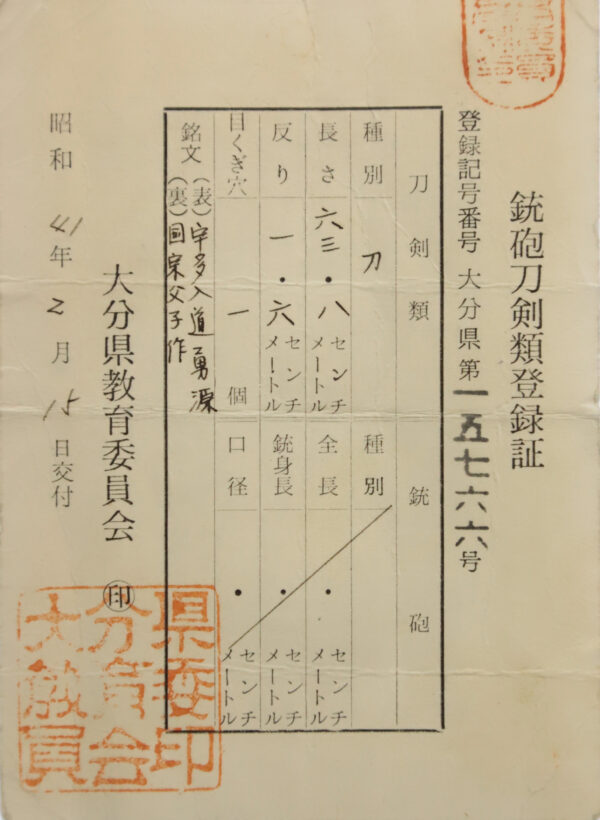 銃砲刀剣類登録証
登録記号番号 大分県第一五七六六号
刀剣類
種別 刀
長さ 六三・八センチメートル
反り 一・六センチメートル
目くぎ穴 一個
銘文(表)宇多入道勇源
(裏)国宗父子作
銃砲
種別
全長 ・ センチメートル
銃身長 ・ センチメートル
口径 ・ センチメートル
大分県教育委員会 ㊞
昭和41年2月15日交付
大分県
教育委
員会印